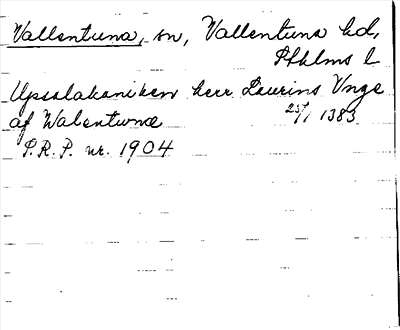 Vallentuna, sn, Vallentuna hd,
Sthlms l
Upsalakaniken herr Laurins Unge
af Walentunæ 25/1 1383
S.R.P. nr. 1904